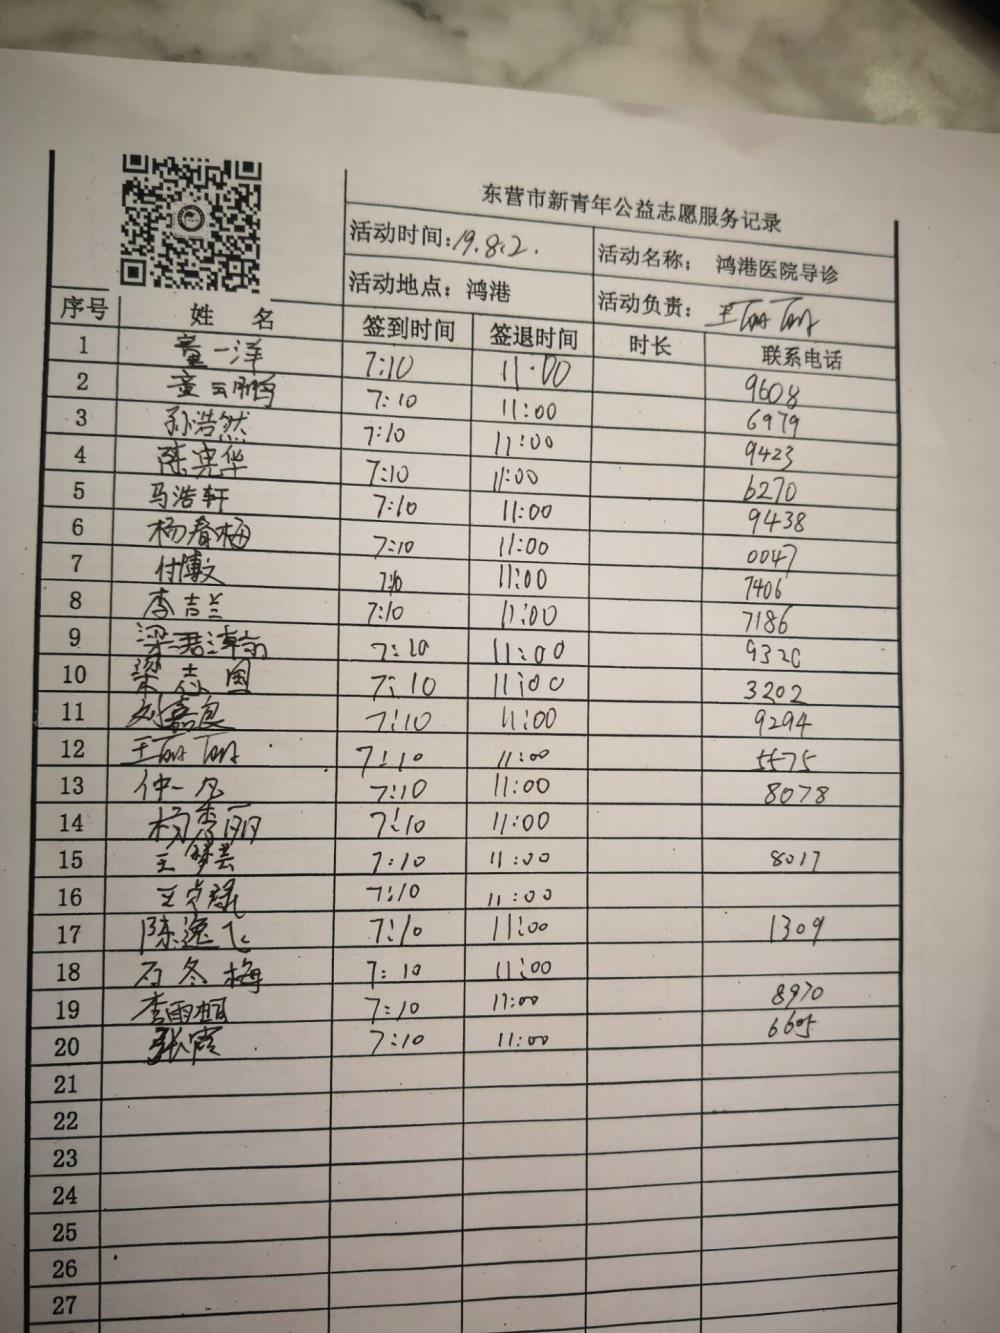 东营市新青年公益志愿服务记录
活动时间:19.8.2. 活动名称: 鸿港医院导诊
活动地点: 鸿港 活动负责: 王丽丽
序号 姓 名 签到时间 签退时间 时长 联系电话
1 童一洋 7:10 11:00 9608
2 童云鹏 7:10 11:00 6979
3 孙浩然 7:10 11:00 9423
4 陈宪华 7:10 11:00 6270
5 马浩轩 7:10 11:00 9438
6 杨春梅 7:10 11:00 0047
7 付博文 7:10 11:00 7406
8 李吉兰 7:10 11:00 7186
9 梁 7:10 11:00 9320
10 梁志国 7:10 11:00 3202
11 刘嘉良 7:10 11:00 9294
12 王丽丽 7:10 11:00 5575
13 仲一凡 7:10 11:00 8078
14 杨秀丽 7:10 11:00
15 王梦芸 7:10 11:00 8017
16 王 7:10 11:00
17 陈逸飞 7:10 11:00 1309
18 石冬梅 7:10 11:00
19 李雨桐 7:10 11:00 8970
20 张霞 7:10 11:00 6605
21
22
23
24
25
26
27